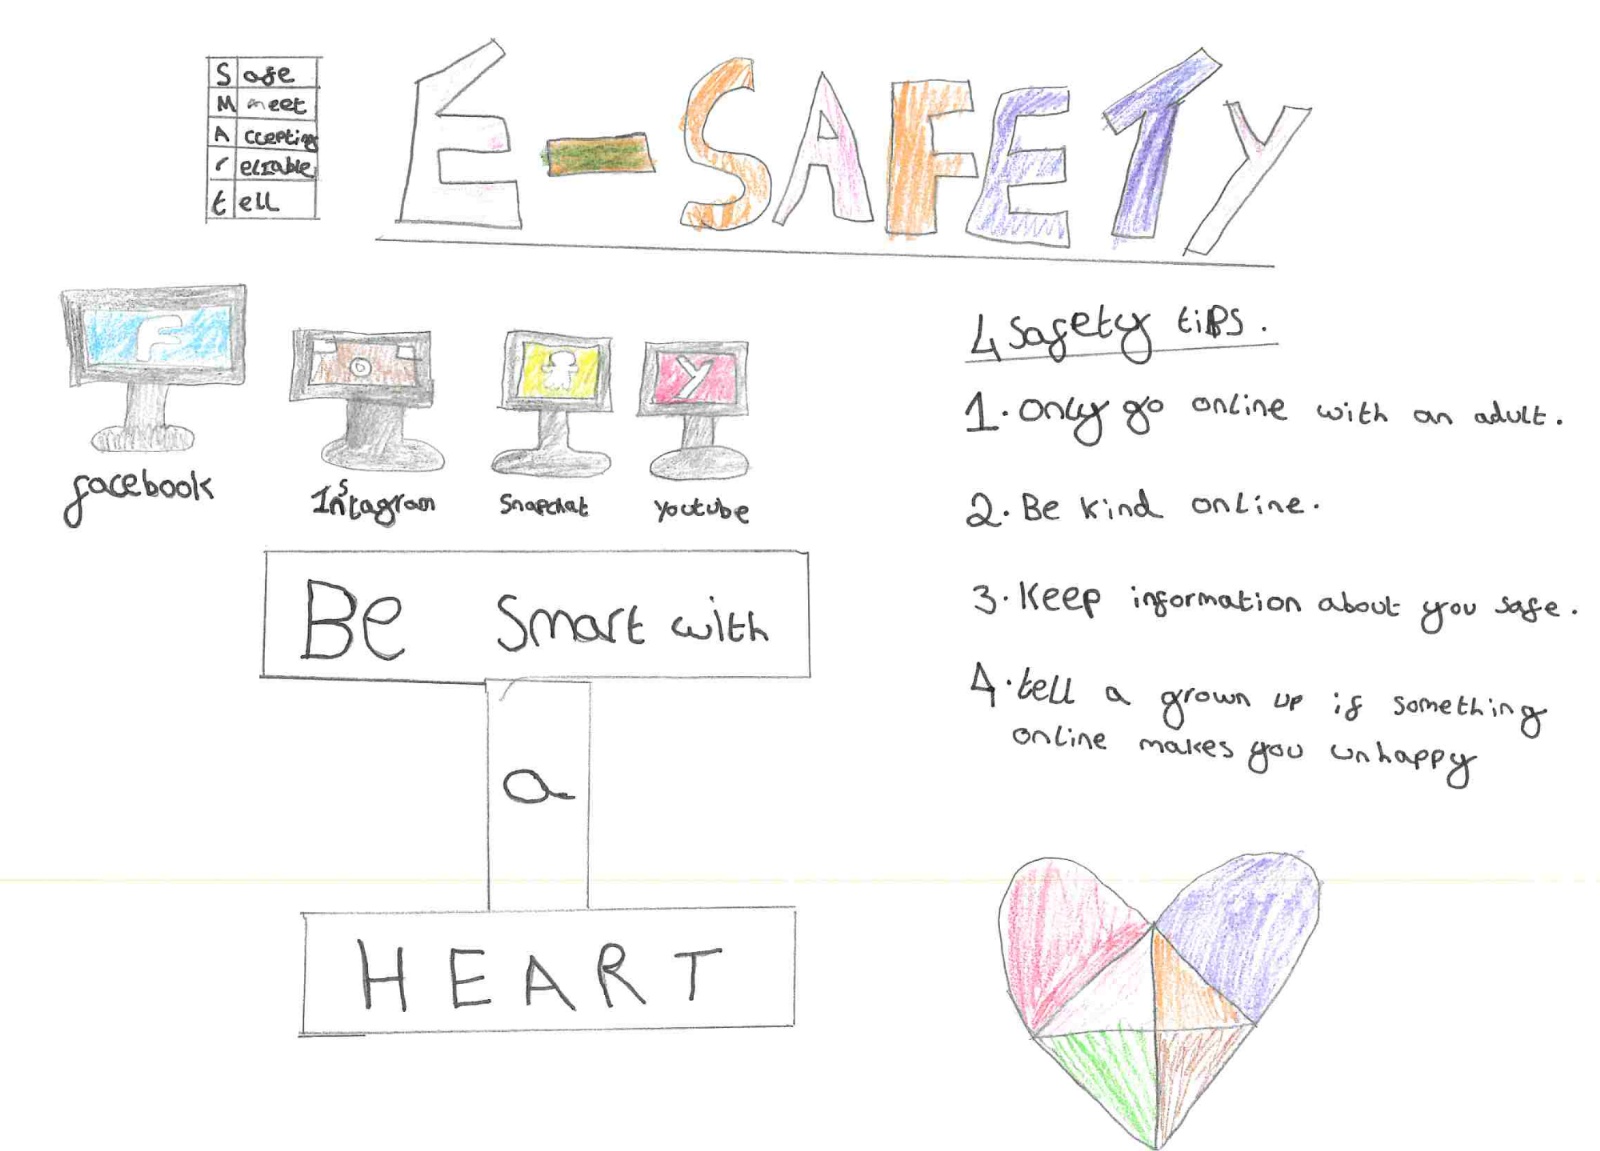 Safe
Meet
Accepting
reliable
tell
E-SAFETY
F
Y
facebook
Instagram
Snapchat
youtube
4 safety tips.
1. only go online with an adult.
2. Be kind online.
3. Keep information about you safe.
4. tell a grown up if something
online makes you unhappy
Be smart with
a
HEART